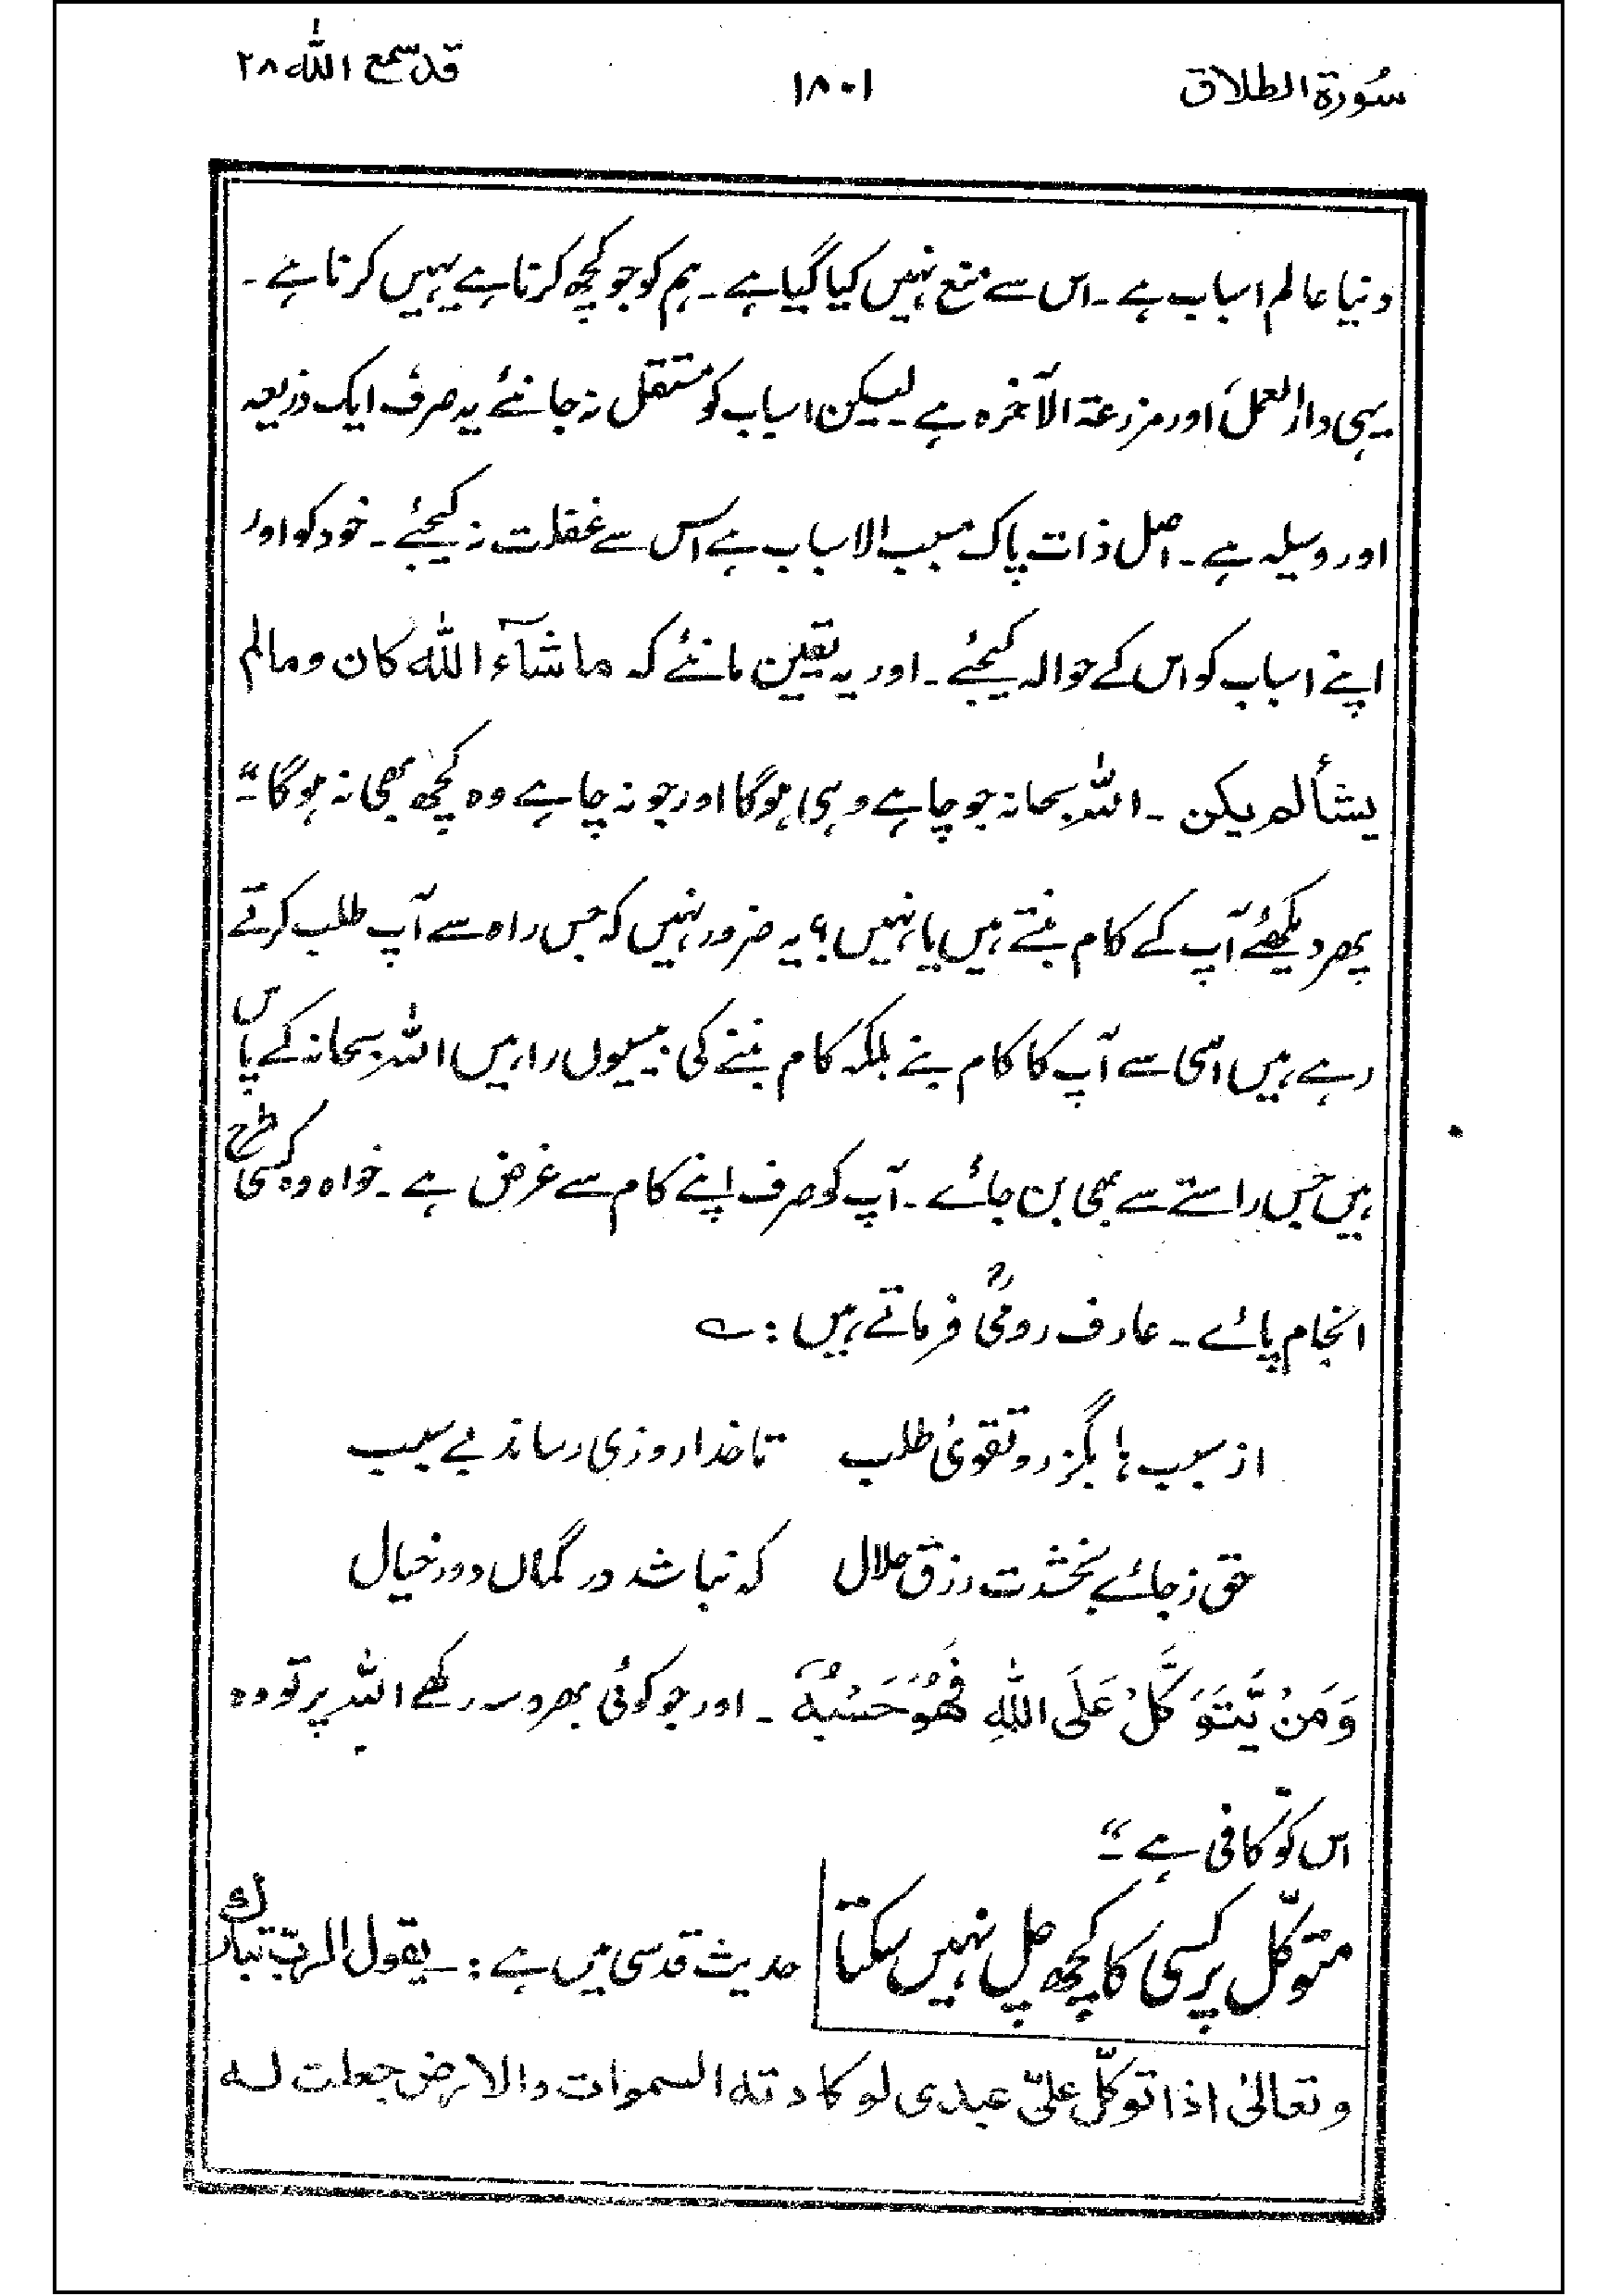 سُورۃ الطلاق ۱۸۰۱ قد سمع اللہ ۲۸
دنیا عالم اسباب ہے ۔ اس سے منع نہیں کیا گیا ہے ۔ ہم کو جو کچھ کرنا ہے یہیں کرنا ہے ۔
یہی دار العمل اور مزرعۃ الآخرہ ہے ۔ لیکن اسباب کو مستقل نہ جانئے یہ صرف ایک ذریعہ
اور وسیلہ ہے ۔ اصل ذات پاک مسبب الاسباب ہے اس سے غفلت نہ کیجئے ۔ خود کو اور
اپنے اسباب کو اس کے حوالہ کیجئے ۔ اور یہ یقین مانئے کہ ماشآء اللہ کان و مالم
یشألم یکن ۔ اللہ سبحانہ جو چاہے وہی ہوگا اور جو نہ چاہے وہ کچھ بھی نہ ہوگا ۔“
پھر دیکھئے آپ کے کام بنتے ہیں یا نہیں ؟ یہ ضرور نہیں کہ جس راہ سے آپ طلب کرتے
رہے ہیں اسی سے آپ کا کام بنے بلکہ کام بننے کی بیسیوں راہیں اللہ سبحانہ کے پاس
ہیں جس راستے سے بھی بن جائے ۔ آپ کو صرف اپنے کام سے غرض ہے ۔ خواہ وہ کسی طرح
انجام پائے ۔ عارف رومیؒ فرماتے ہیں : ؎
از سبب ہا بگزر و تقویٰ طلب تا خدا روزی رساند بے سبب
حق ز جائے بخشدت رزق حلال کہ نباشد در گماں و در خیال
وَمَنْ یَّتَوَکَّلْ عَلَی اللّٰہِ فَھُوَ حَسْبُہٗ ۔ اور جو کوئی بھروسہ رکھے اللہ پر تو وہ
اس کو کافی ہے ۔“
متوکّل پر کسی کا کچھ چل نہیں سکتا حدیث قدسی میں ہے : یقول الربّ تبارک
وتعالیٰ اذا توکّل علیّ عبدی لو کادتہ السموات والارض جعلت لہ